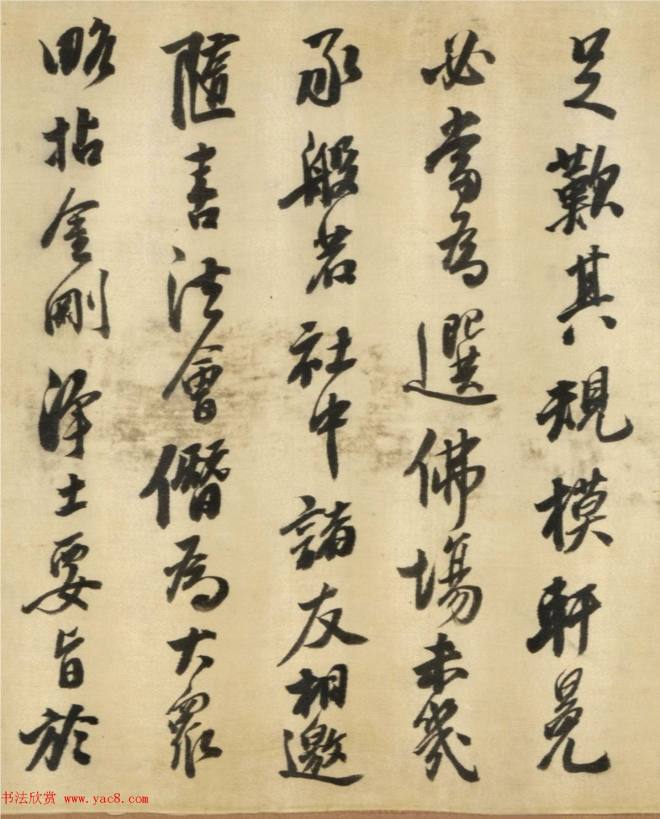 足歎其規模軒晃
必當為選佛場未幾
承般若社中諸友相邀
隨喜法會僭為大眾
略拈金剛淨土要旨於
书法欣赏 www.yac8.com